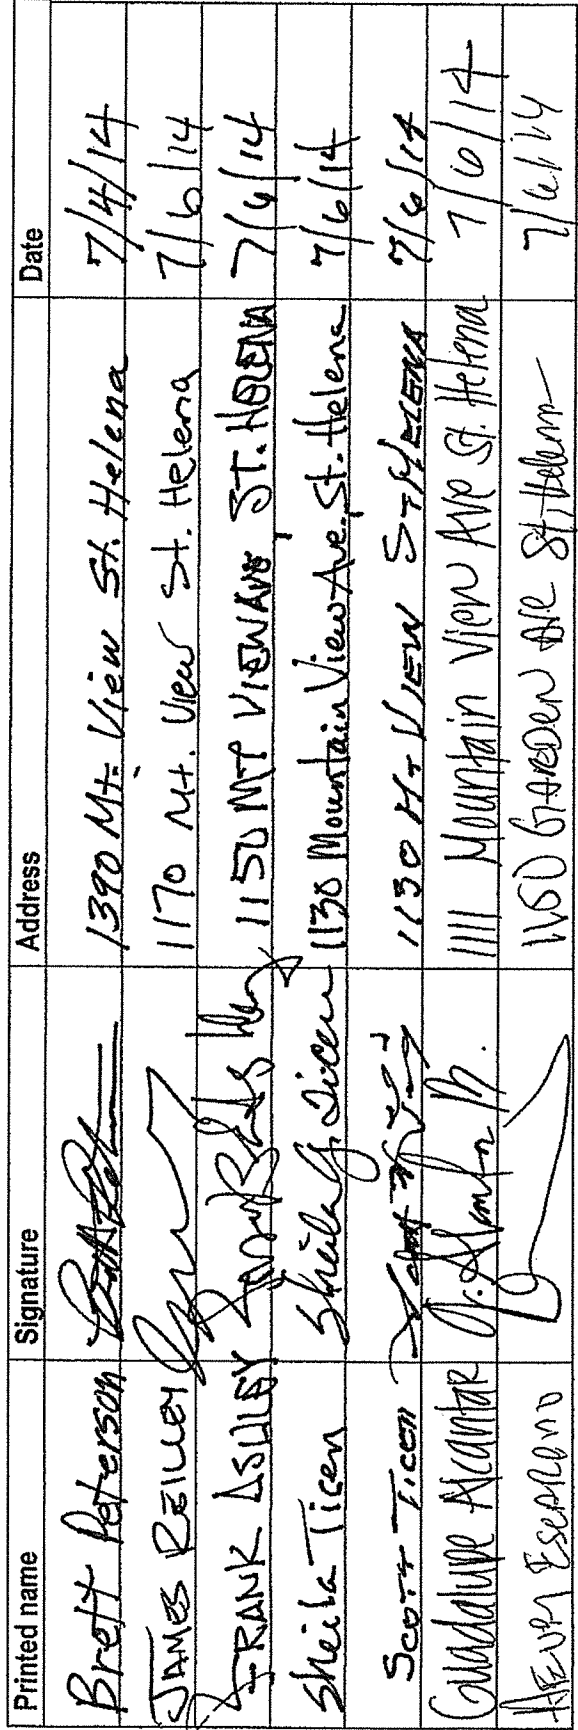 Printed name Signature Address Date
Brett Peterson 1390 Mt. View St. Helena 7/4/14
JAMES REILLEY 1170 Mt. View St. Helena 7/6/14
FRANK ASHLEY 1150 MT VIEW AVE ST. HELENA 7/6/14
Sheila Ticen Sheila G Ticen 1130 Mountain View Ave. St. Helena 7/6/14
SCOTT TICEN 1130 Mt VIEW ST HELENA 7/6/14
Guadalupe Alcantar 1111 Mountain View Ave St. Helena 7/6/14
1160 GARDEN AVE St. Helena 7/6/14